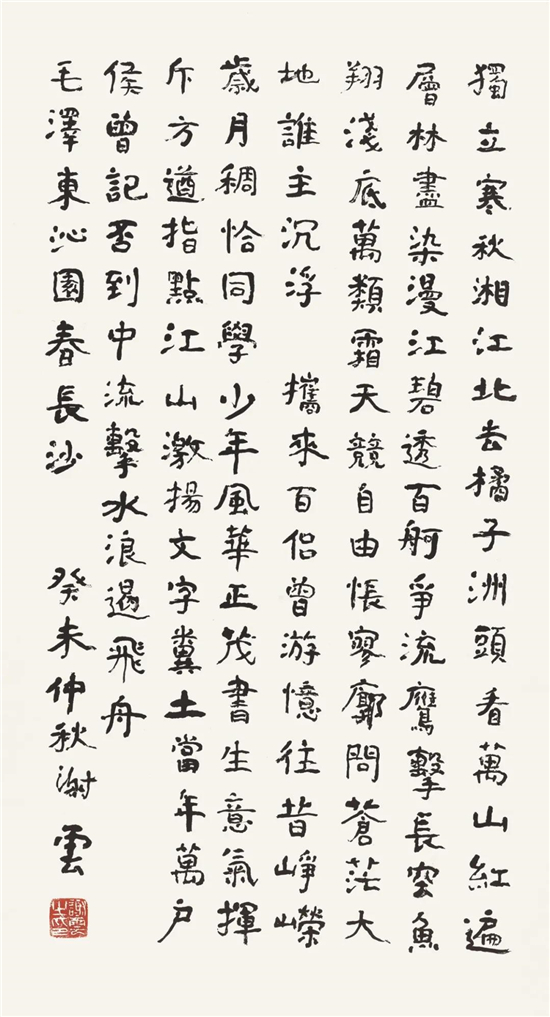 獨立寒秋湘江北去橘子洲頭看萬山紅遍
層林盡染漫江碧透百舸爭流鷹擊長空魚
翔淺底萬類霜天競自由悵寥廓問蒼茫大
地誰主沉浮　攜來百侶曾游憶往昔崢嶸
歲月稠恰同學少年風華正茂書生意氣揮
斥方遒指點江山激揚文字糞土當年萬户
侯曾記否到中流擊水浪遏飛舟
毛澤東沁園春長沙　癸未仲秋謝雲